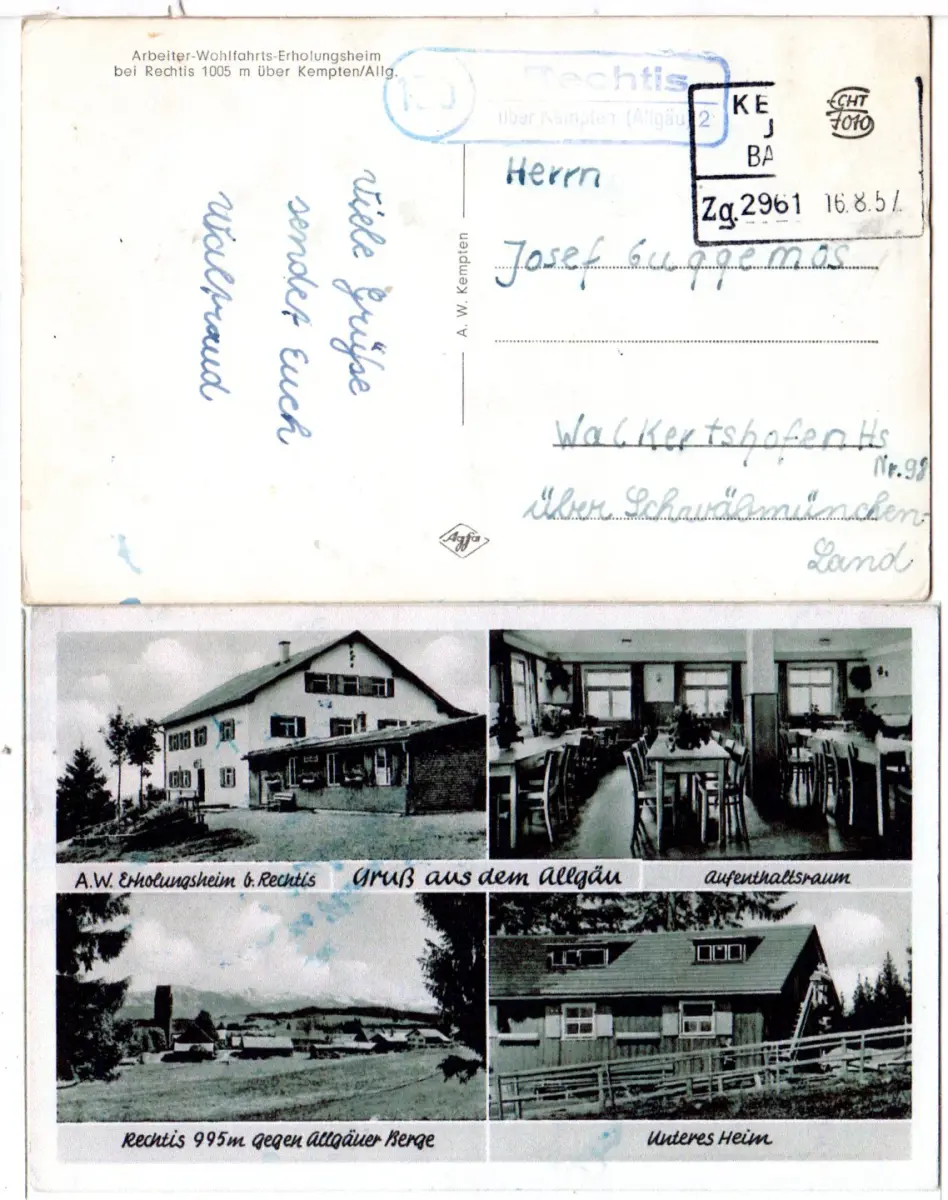 Arbeiter-Wohlfahrts-Erholungsheim
bei Rechtis 1005 m über Kempten/Allg.
Rechtis
über Kempten (Allgäu) 2
KE
J
BA
Zg. 2961 16.8.57
ECHT
7010
Viele Grüße
sendet Euch
Waltraud
A. W. Kempten
Herrn
Josef Guggemos
Walkertshofen Hs
Nr. 98
über Schwabmünchen-
Land
Agfa
A.W. Erholungsheim b. Rechtis
Gruß aus dem Allgäu
Aufenthaltsraum
Rechtis 995m gegen Allgäuer Berge
Unteres Heim